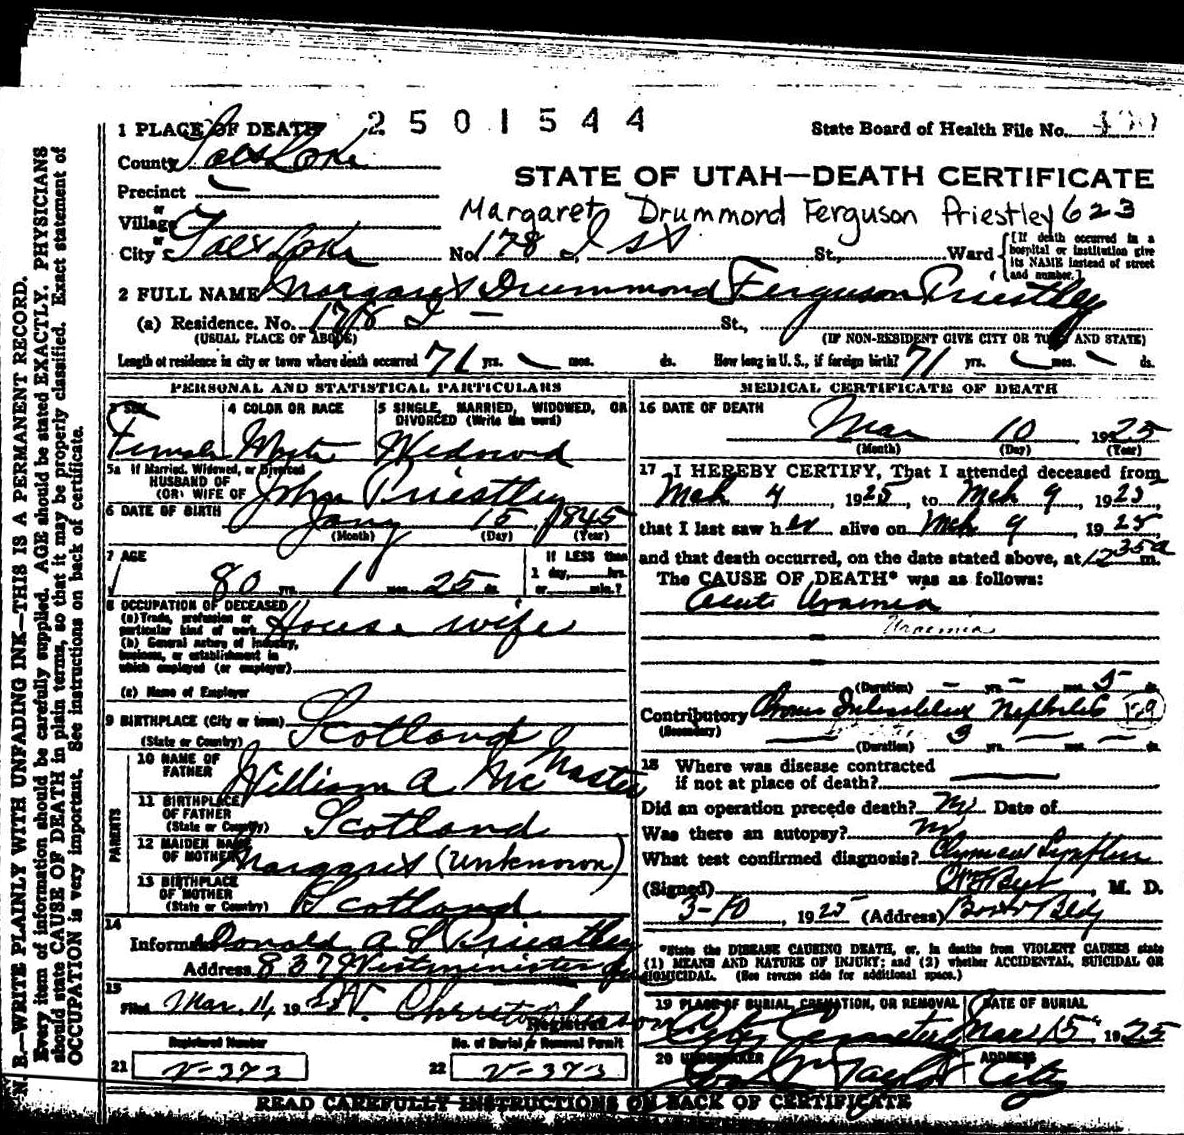 N. B.—WRITE PLAINLY WITH UNFADING INK—THIS IS A PERMANENT RECORD.
Every item of information should be carefully supplied. AGE should be stated EXACTLY. PHYSICIANS
should state CAUSE OF DEATH in plain terms, so that it may be properly classified. Exact statement of
OCCUPATION is very important. See instructions on back of certificate.
2501544
1 PLACE OF DEATH
State Board of Health File No.
County Salt Lake
STATE OF UTAH—DEATH CERTIFICATE
Precinct
Margaret Drummond Ferguson Priestley 623
or
Village
or
City Salt Lake No. 178 I St St., Ward
[If death occurred in a hospital or institution give its NAME instead of street and number.]
2 FULL NAME Margaret Drummond Ferguson Priestley
(a) Residence. No. 178 I — St.,
(USUAL PLACE OF ABODE) (IF NON-RESIDENT GIVE CITY OR TOWN AND STATE)
Length of residence in city or town where death occurred 71 yrs. mos. ds. How long in U. S., if foreign birth? 71 yrs. mos. ds.
PERSONAL AND STATISTICAL PARTICULARS
3 SEX 4 COLOR OR RACE 5 SINGLE, MARRIED, WIDOWED, OR DIVORCED (Write the word)
Female White Widowed
5a If Married, Widowed, or Divorced
HUSBAND OF
(OR) WIFE OF John Priestley
6 DATE OF BIRTH Jany 15 1845
(Month) (Day) (Year)
7 AGE If LESS than
80 yrs. 1 mos. 25 ds. 1 day, hrs.
or min.?
8 OCCUPATION OF DECEASED
(a) Trade, profession or
particular kind of work House wife
(b) General nature of industry,
business, or establishment in
which employed (or employer)
(c) Name of Employer
9 BIRTHPLACE (City or town)
(State or Country) Scotland
PARENTS
10 NAME OF
FATHER William A McMaster
11 BIRTHPLACE
OF FATHER
(State or Country) Scotland
12 MAIDEN NAME
OF MOTHER Margaret (unknown)
13 BIRTHPLACE
OF MOTHER
(State or Country) Scotland
14
Informant Donald A S Priestley
Address 837 Westminister Ave
15
Filed Mar. 11, 1925 Registrar
Registered Number No. of Burial or Removal Permit
21 V-373 22 V-373
MEDICAL CERTIFICATE OF DEATH
16 DATE OF DEATH
Mar 10, 1925
(Month) (Day) (Year)
17 I HEREBY CERTIFY, That I attended deceased from
Mch 4, 1925, to Mch 9, 1925,
that I last saw her alive on Mch 9, 1925,
and that death occurred, on the date stated above, at 12 35 a m.
The CAUSE OF DEATH* was as follows:
Acute Uraemia
Uraemia
(Duration) — yrs. — mos. 5 ds.
Contributory Chronic Interstitial Nephritis 129
(Secondary)
(Duration) 3 yrs. — mos. — ds.
18 Where was disease contracted
if not at place of death?
Did an operation precede death? No Date of
Was there an autopsy? No
What test confirmed diagnosis?
(Signed) , M. D.
3-10, 1925 (Address) Bldg
*State the DISEASE CAUSING DEATH, or, in deaths from VIOLENT CAUSES state
(1) MEANS AND NATURE OF INJURY; and (2) whether ACCIDENTAL, SUICIDAL OR
HOMICIDAL. (See reverse side for additional space.)
19 PLACE OF BURIAL, CREMATION, OR REMOVAL DATE OF BURIAL
City Cemetery Mar 15 1925
20 UNDERTAKER ADDRESS
Taylor City
READ CAREFULLY INSTRUCTIONS ON BACK OF CERTIFICATE